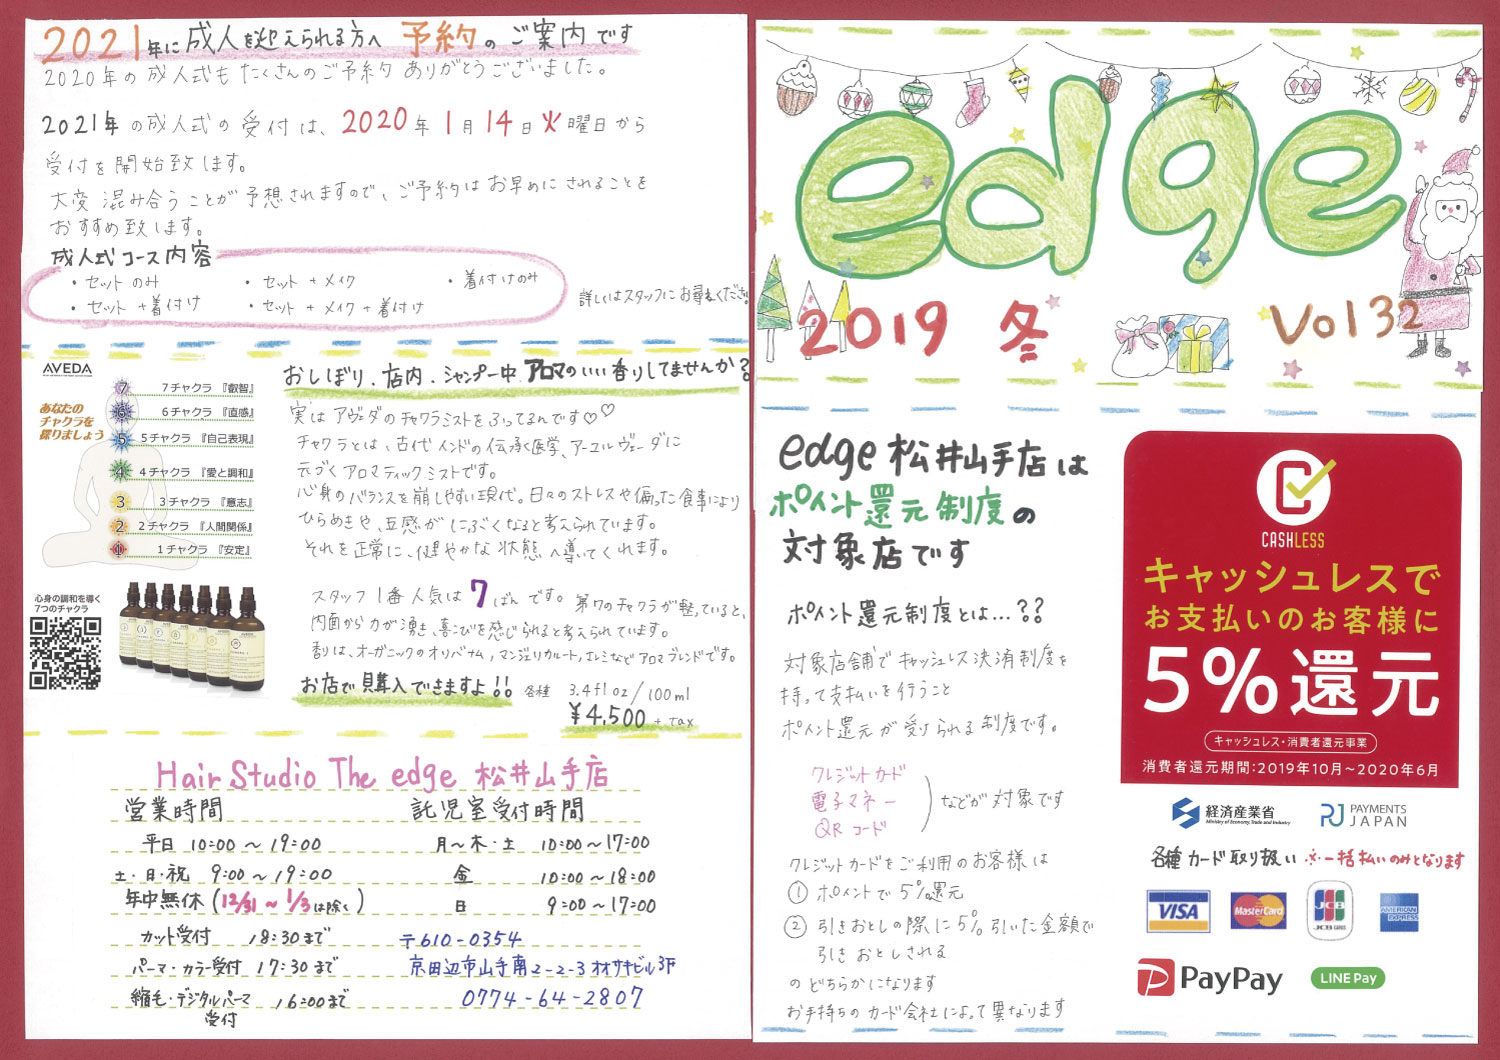 2021年に成人を迎えられる方へ 予約のご案内です
2020年の成人式もたくさんのご予約ありがとうございました。
2021年の成人式の受付は、2020年1月14日火曜日から
受付を開始致します。
大変混み合うことが予想されますので、ご予約はお早めにされることを
おすすめ致します。
成人式コース内容
・セットのみ ・セット+メイク ・着付けのみ
・セット+着付け ・セット+メイク+着付け
詳しくはスタッフにお尋ねください。
AVEDA
あなたの
チャクラを
探りましょう
7 7チャクラ『叡智』
6 6チャクラ『直感』
5 5チャクラ『自己表現』
4 4チャクラ『愛と調和』
3 3チャクラ『意志』
2 2チャクラ『人間関係』
1 1チャクラ『安定』
心身の調和を導く
7つのチャクラ
おしぼり、店内、シャンプー中、アロマのいい香りしてませんか?
実はアヴェダのチャクラミストをふってるんです♡♡
チャクラとは、古代インドの伝承医学、アーユルヴェーダに
元づくアロマティックミストです。
心身のバランスを崩しやすい現代。日々のストレスや偏った食事により
ひらめきや、五感がにぶくなると考えられています。
それを正常に、健やかな状態へ導いてくれます。
スタッフ1番人気は7ばんです。第7のチャクラが整っていると、
内面から力が湧き、喜びを感じられると考えられています。
香りは、オーガニックのオリバナム,マンジェリカルート,エレミなどアロマブレンドです。
お店で購入できますよ!! 各種 3.4fl oz/100ml
¥4,500 + tax
Hair Studio The edge 松井山手店
営業時間
平日 10:00～19:00
土・日・祝 9:00～19:00
年中無休(12/31～1/3は除く)
カット受付 18:30まで
パーマ・カラー受付 17:30まで
縮毛・デジタルパーマ 16:00まで
受付
託児室受付時間
月～木・土 10:00～17:00
金 10:00～18:00
日 9:00～17:00
〒610-0354
京田辺市山手南2-2-3オオサキビル3F
0774-64-2807
edge
2019 冬 Vol 32
edge 松井山手店は
ポイント還元制度の
対象店です
ポイント還元制度とは…??
対象店舗でキャッシュレス決済制度を
持って支払いを行うこと
ポイント還元が受けられる制度です。
クレジットカード
電子マネー
QRコード
などが対象です
クレジットカードをご利用のお客様は
①ポイントで5%還元
②引きおとしの際に5%引いた金額で
引きおとしされる
のどちらかになります
お手持ちのカード会社によって異なります
CASHLESS
キャッシュレスで
お支払いのお客様に
5%還元
キャッシュレス・消費者還元事業
消費者還元期間:2019年10月～2020年6月
経済産業省
Ministry of Economy, Trade and Industry
PAYMENTS
JAPAN
各種カード取り扱い ※一括払いのみとなります
VISA MasterCard JCB JCB CARDS AMERICAN EXPRESS
PayPay LINE Pay